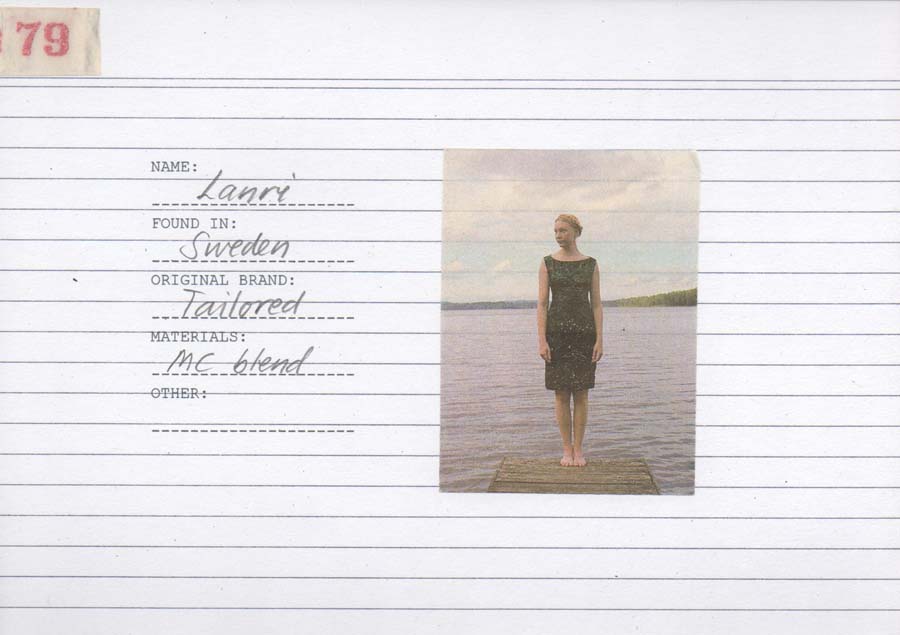 79
NAME:
Lanri
FOUND IN:
Sweden
ORIGINAL BRAND:
Tailored
MATERIALS:
MC blend
OTHER: